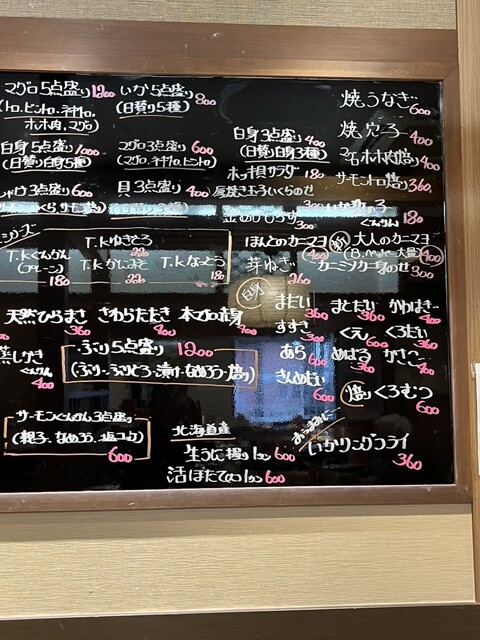 マグロ5点盛り 1200
(トロ、ビントロ、ネギトロ、
ホホ肉、マグロ)
いか5点盛り 800
(日替り5種)
焼うなぎ 600
焼穴子 400
白身5点盛り 1000
(日替り白身5種)
マグロ3点盛り 600
(マグロ、ネギトロ、ビントロ)
白身3点盛り 400
(日替り白身3種)
マグロホホ肉焼き 400
3点盛り 600
貝3点盛り 400
サラダー 180
サーモントロ焼き 360
厚焼き玉子いくらのせ 300
ぐんかん 180
T.Kぐんかん
(プレーン) 180
T.Kゆきとろ 220
T.Kかにみそ 220
T.Kなっとう 180
ほんとのカニマヨ 400
大人のカニマヨ 400
芽ねぎ 260
カニミソカニ身のせ 300
白身
天然ひらまさ 360
さわらたたき 400
本マグロ赤身 400
まだい 360
まとだい 360
かわはぎ 400
すずき 300
くえ 600
くろだい 360
蒸しかき
ぐんかん 400
ぶり5点盛り 1200
(ぶり・ぶりとろ・漬け・なめろう・焼き)
あら 600
めばる 360
かさご 400
きんめだい 600
焼き くろむつ 600
サーモンぐんかん3点盛り
(親子、なめろう、塩ユッケ) 600
北海道産
生うに握り1カン 600
活ほたて1カン 600
おつまみに
いかリングフライ 360